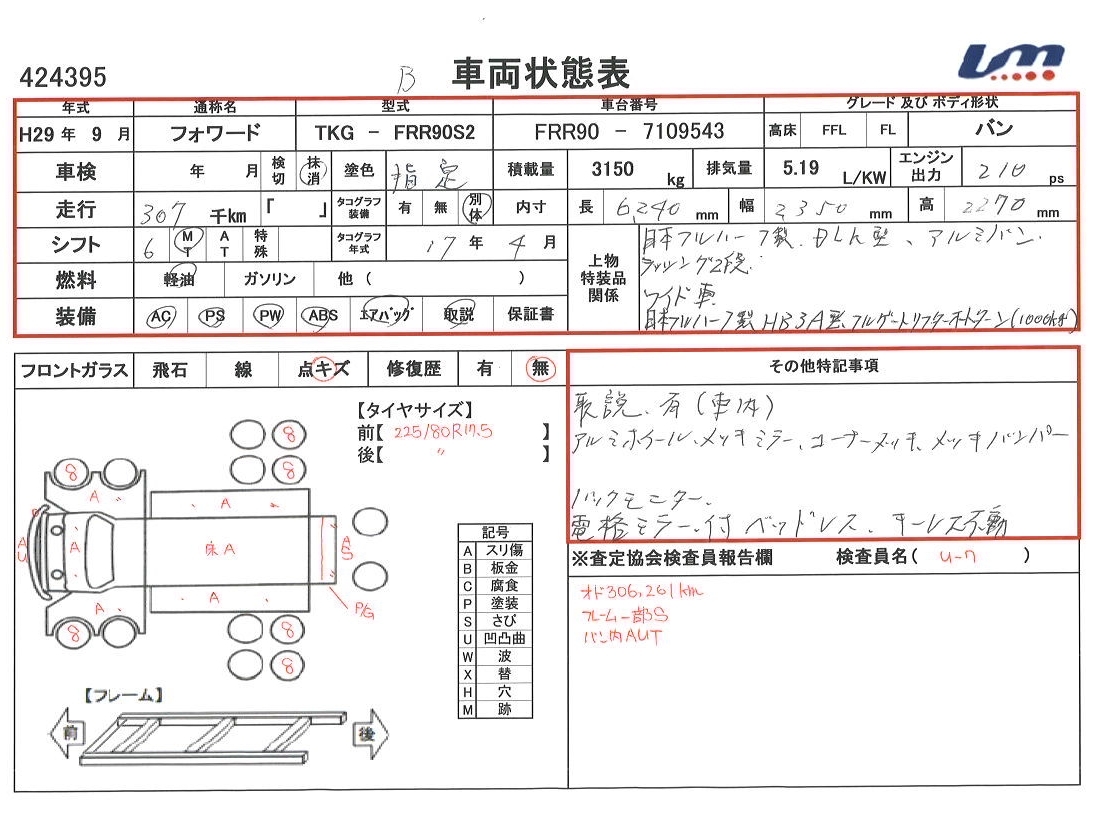 424395
B
車両状態表
年式 通称名 型式 車台番号 グレード 及び ボディ形状
H29 年 9 月 フォワード TKG - FRR90S2 FRR90 - 7109543 高床 FFL FL バン
車検 年 月 検切 抹消 塗色 指定 積載量 3150 kg 排気量 5.19 L/KW エンジン出力 210 ps
走行 307 千km 「 」 タコグラフ装備 有 無 別体 内寸 長 6,240 mm 幅 2350 mm 高 2270 mm
シフト 6 MT AT 特殊 タコグラフ年式 17 年 4 月
燃料 軽油 ガソリン 他 ( )
装備 AC PS PW ABS エアバッグ 取説 保証書
上物特装品関係
日本フルハーフ製、 、アルミバン.
ラッシング2段.
ワイド車
日本フルハーフ製HB3A型、フルゲートリフター (1000kg)
フロントガラス 飛石 線 点キズ 修復歴 有 無
その他特記事項
取説、有(車内)
アルミホイール、メッキミラー、コーナーメッキ、メッキバンパー
バックモニター.
電格ミラー付 ベッドレス、キーレス不動
【タイヤサイズ】
前【 225/80R17.5 】
後【 〃 】
8
8
8
8
8
8
A
A
A
A
A
床A
AU
AS
P/G
記号
A スリ傷
B 板金
C 腐食
P 塗装
S さび
U 凹凸曲
W 波
X 替
H 穴
M 跡
【フレーム】
前
後
※査定協会検査員報告欄 検査員名( U-7 )
オド306,261km
フレーム一部S
バン内AUT